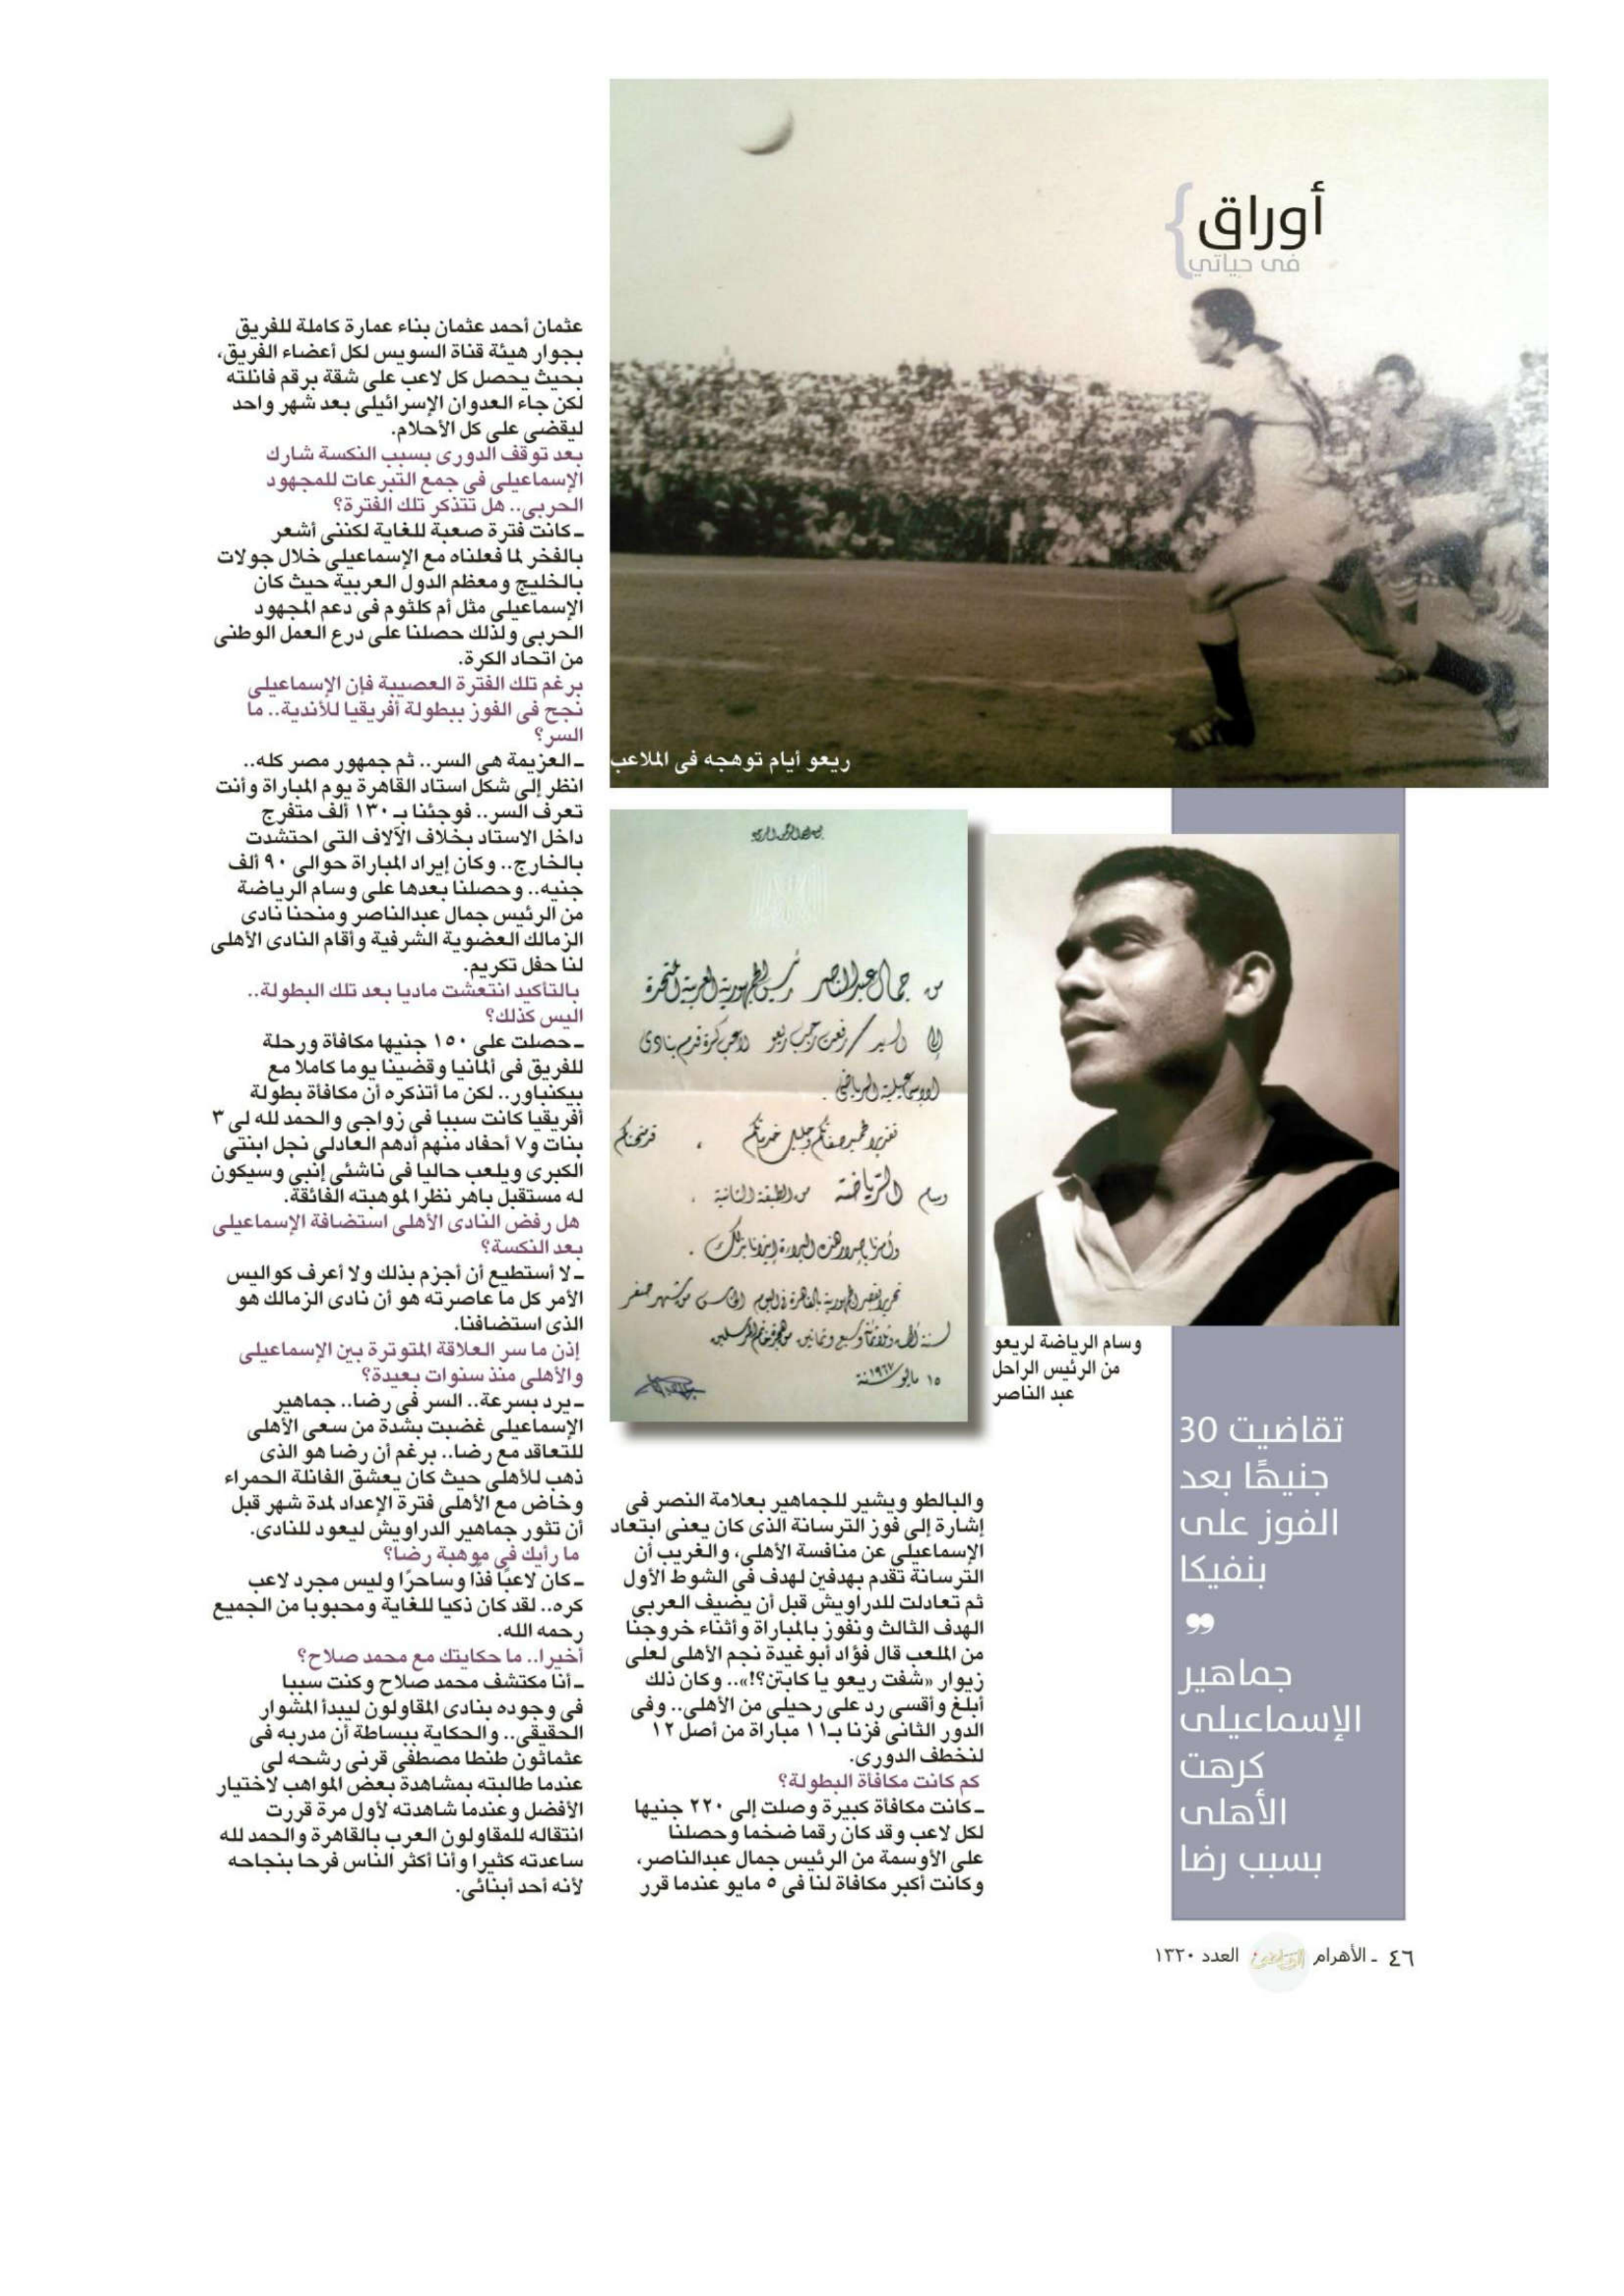 أوراق
فى حياتي
ريعو أيام توهجه فى الملاعب
من جمال عبد الناصر رئيس الجمهورية العربية المتحدة
إلى السيد / رفعت رجب ريعو لاعب كرة قدم بنادى
الإسماعيلية الرياضى .
تقديرا لحميد صفاتكم وجليل خدماتكم ، قد منحناكم
وسام الرياضة من الطبقة الثانية .
وأمرنا بإصدار هذه البراءة إيذانا بذلك .
تحريرا بقصر الجمهورية بالقاهرة فى اليوم الخامس من شهر صفر
لسنة ألف وثلاثمائة وسبع وثمانين من هجرة خاتم المرسلين
١٥ مايو سنة ١٩٦٧
وسام الرياضة لريعو
من الرئيس الراحل
عبد الناصر
تقاضيت 30
جنيهًا بعد
الفوز على
بنفيكا
جماهير
الإسماعيلى
كرهت
الأهلى
بسبب رضا
والبالطو ويشير للجماهير بعلامة النصر فى
إشارة إلى فوز الترسانة الذى كان يعنى ابتعاد
الإسماعيلى عن منافسة الأهلى، والغريب أن
الترسانة تقدم بهدفين لهدف فى الشوط الأول
ثم تعادلت للدراويش قبل أن يضيف العربى
الهدف الثالث ونفوز بالمباراة وأثناء خروجنا
من الملعب قال فؤاد أبو غيدة نجم الأهلى لعلى
زيوار «شفت ريعو يا كابتن؟!».. وكان ذلك
أبلغ وأقسى رد على رحيلى من الأهلى.. وفى
الدور الثانى فزنا بـ١١ مباراة من أصل ١٢
لنخطف الدورى.
كم كانت مكافأة البطولة؟
ـ كانت مكافأة كبيرة وصلت إلى ٢٢٠ جنيها
لكل لاعب وقد كان رقما ضخما وحصلنا
على الأوسمة من الرئيس جمال عبدالناصر،
وكانت أكبر مكافاة لنا فى ٥ مايو عندما قرر
عثمان أحمد عثمان بناء عمارة كاملة للفريق
بجوار هيئة قناة السويس لكل أعضاء الفريق،
بحيث يحصل كل لاعب على شقة برقم فانلته
لكن جاء العدوان الإسرائيلى بعد شهر واحد
ليقضى على كل الأحلام.
بعد توقف الدورى بسبب النكسة شارك
الإسماعيلى فى جمع التبرعات للمجهود
الحربى.. هل تتذكر تلك الفترة؟
ـ كانت فترة صعبة للغاية لكننى أشعر
بالفخر لما فعلناه مع الإسماعيلى خلال جولات
بالخليج ومعظم الدول العربية حيث كان
الإسماعيلى مثل أم كلثوم فى دعم المجهود
الحربى ولذلك حصلنا على درع العمل الوطنى
من اتحاد الكرة.
برغم تلك الفترة العصيبة فإن الإسماعيلى
نجح فى الفوز ببطولة أفريقيا للأندية.. ما
السر؟
ـ العزيمة هى السر.. ثم جمهور مصر كله..
انظر إلى شكل استاد القاهرة يوم المباراة وأنت
تعرف السر.. فوجئنا بـ ١٣٠ ألف متفرج
داخل الاستاد بخلاف الآلاف التى احتشدت
بالخارج.. وكان إيراد المباراة حوالى ٩٠ ألف
جنيه.. وحصلنا بعدها على وسام الرياضة
من الرئيس جمال عبدالناصر ومنحنا نادى
الزمالك العضوية الشرفية وأقام النادى الأهلى
لنا حفل تكريم.
بالتأكيد انتعشت ماديا بعد تلك البطولة..
اليس كذلك؟
ـ حصلت على ١٥٠ جنيها مكافأة ورحلة
للفريق فى ألمانيا وقضينا يوما كاملا مع
بيكنباور.. لكن ما أتذكره أن مكافأة بطولة
أفريقيا كانت سببا فى زواجى والحمد لله لى ٣
بنات و٧ أحفاد منهم أدهم العادلى نجل ابنتى
الكبرى ويلعب حاليا فى ناشئى إنبى وسيكون
له مستقبل باهر نظرا لموهبته الفائقة.
هل رفض النادى الأهلى استضافة الإسماعيلى
بعد النكسة؟
ـ لا أستطيع أن أجزم بذلك ولا أعرف كواليس
الأمر كل ما عاصرته هو أن نادى الزمالك هو
الذى استضافنا.
إذن ما سر العلاقة المتوترة بين الإسماعيلى
والأهلى منذ سنوات بعيدة؟
ـ يرد بسرعة.. السر فى رضا.. جماهير
الإسماعيلى غضبت بشدة من سعى الأهلى
للتعاقد مع رضا.. برغم أن رضا هو الذى
ذهب للأهلى حيث كان يعشق الفانلة الحمراء
وخاض مع الأهلى فترة الإعداد لمدة شهر قبل
أن تثور جماهير الدراويش ليعود للنادى.
ما رأيك فى موهبة رضا؟
ـ كان لاعبًا فذًا وساحرًا وليس مجرد لاعب
كره.. لقد كان ذكيا للغاية ومحبوبا من الجميع
رحمه الله.
أخيرا.. ما حكايتك مع محمد صلاح؟
ـ أنا مكتشف محمد صلاح وكنت سببا
فى وجوده بنادى المقاولون ليبدأ المشوار
الحقيقى.. والحكاية ببساطة أن مدربه فى
عثماثون طنطا مصطفى قرنى رشحه لى
عندما طالبته بمشاهدة بعض المواهب لاختيار
الأفضل وعندما شاهدته لأول مرة قررت
انتقاله للمقاولون العرب بالقاهرة والحمد لله
ساعدته كثيرا وأنا أكثر الناس فرحا بنجاحه
لأنه أحد أبنائى.
٤٦ ـ الأهرام الرياضى العدد ١٣٢٠